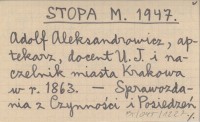 STOPA M. 1947.
Adolf Aleksandrowicz, ap-
tekarz, docent U. J. i na-
czelnik miasta Krakowa
w r. 1863. — Sprawozda-
nia z Czynności i Posiedzeń